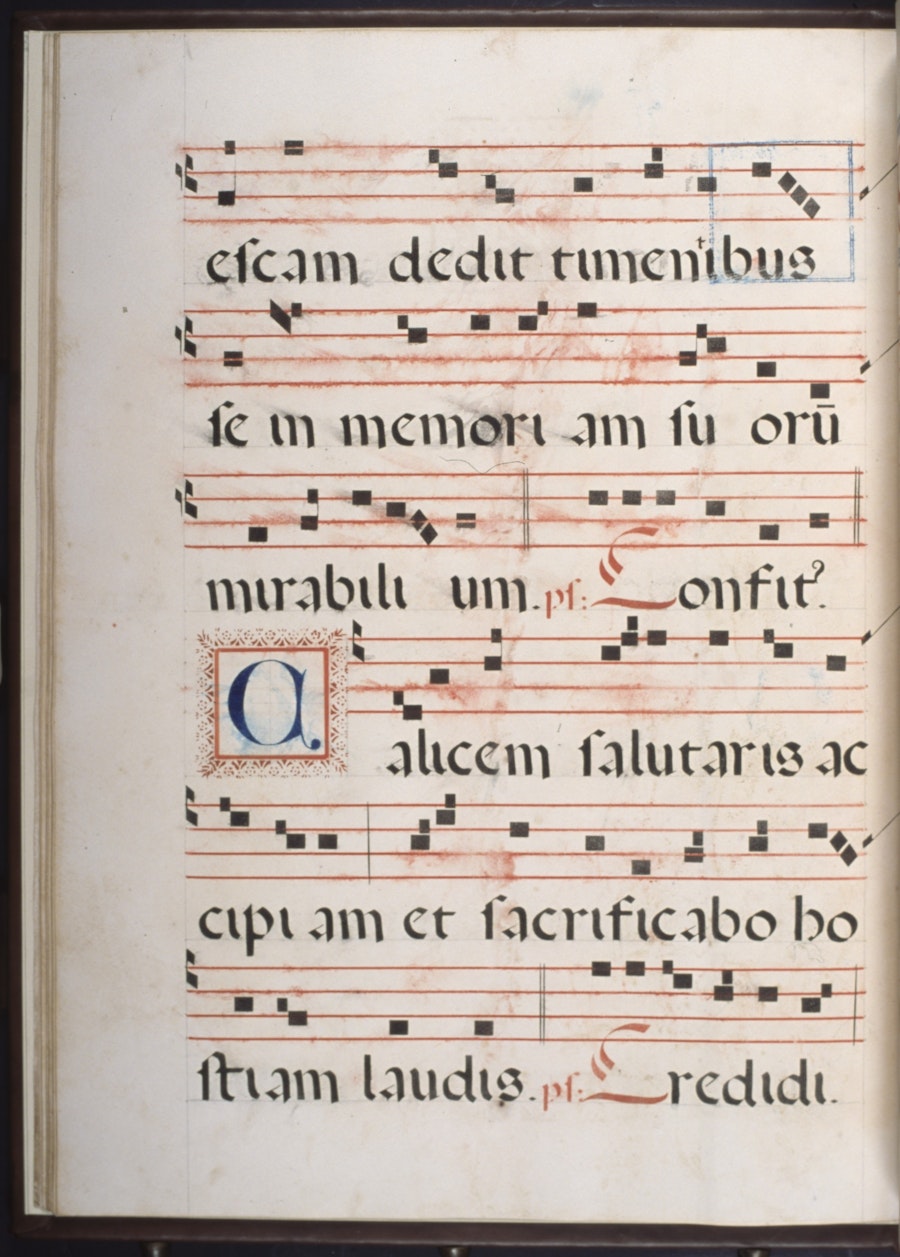 eſcam dedit timentibus
ſe in memori am ſu orū
mirabili um. pſ: Confit̉.
Calicem ſalutaris ac
cipi am et ſacrificabo ho
ſtiam laudis. pſ: Credidi.